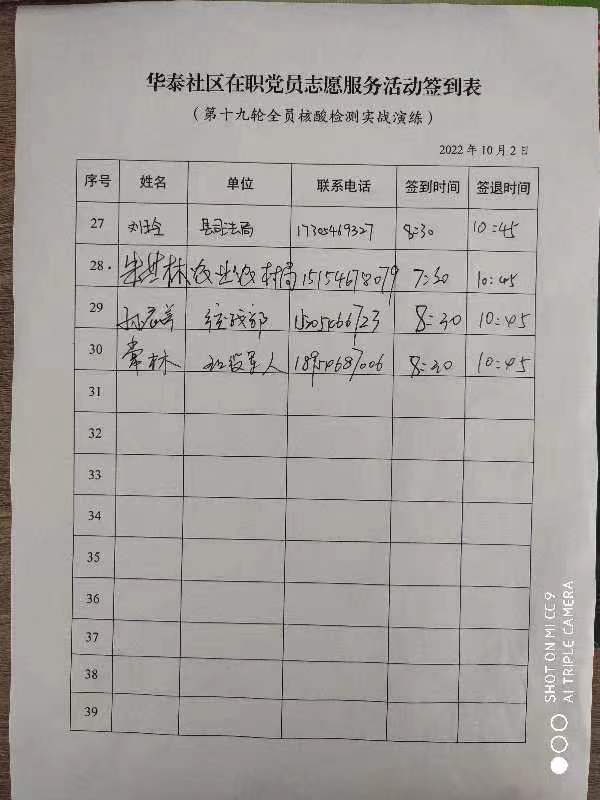 华泰社区在职党员志愿服务活动签到表
（第十九轮全员核酸检测实战演练）
2022年10月2日
序号 姓名 单位 联系电话 签到时间 签退时间
27 刘玲 县司法局 17305469327 8:30 10:45
28 林 农业农村局 15154678079 7:30 10:45
29 孙 统战部 15305466723 8:30 10:45
30 常林 退役军人 18954687006 8:30 10:45
31
32
33
34
35
36
37
38
39
SHOT ON MI CC 9
AI TRIPLE CAMERA